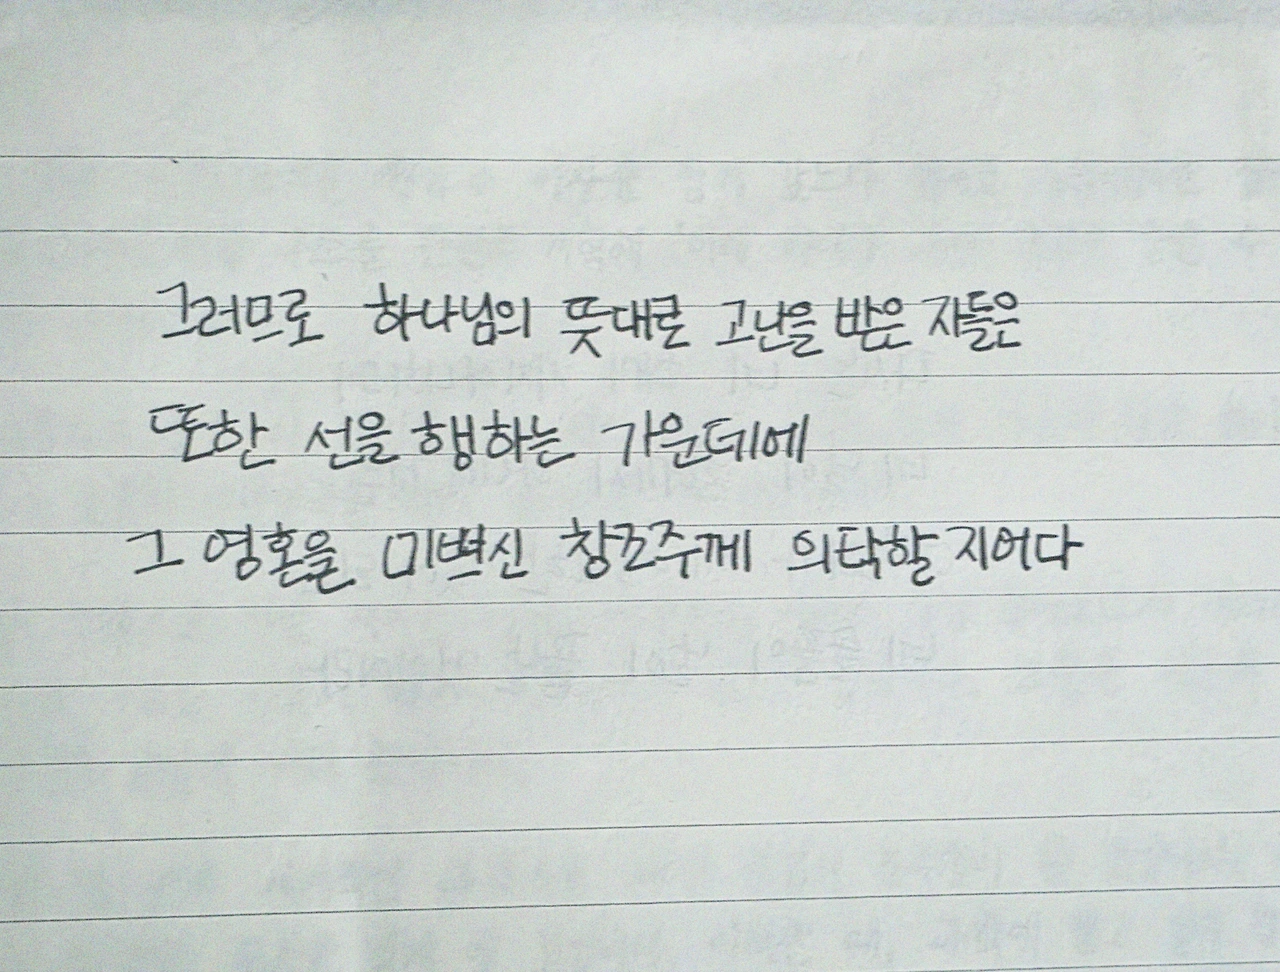 그러므로 하나님의 뜻대로 고난을 받은 자들은
또한 선을 행하는 가운데에
그 영혼을 미쁘신 창조주께 의탁할지어다